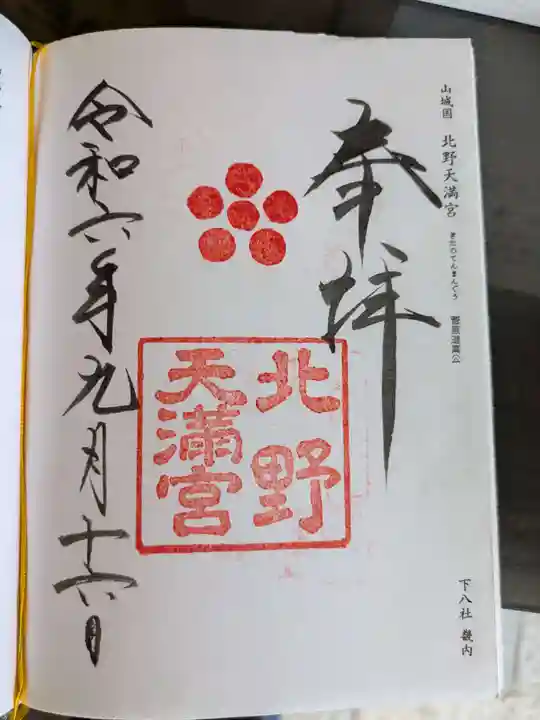 山城国 北野天満宮 きたのてんまんぐう 菅原道真公
奉拝
北野
天満宮
令和六年九月十六日
下八社 畿内